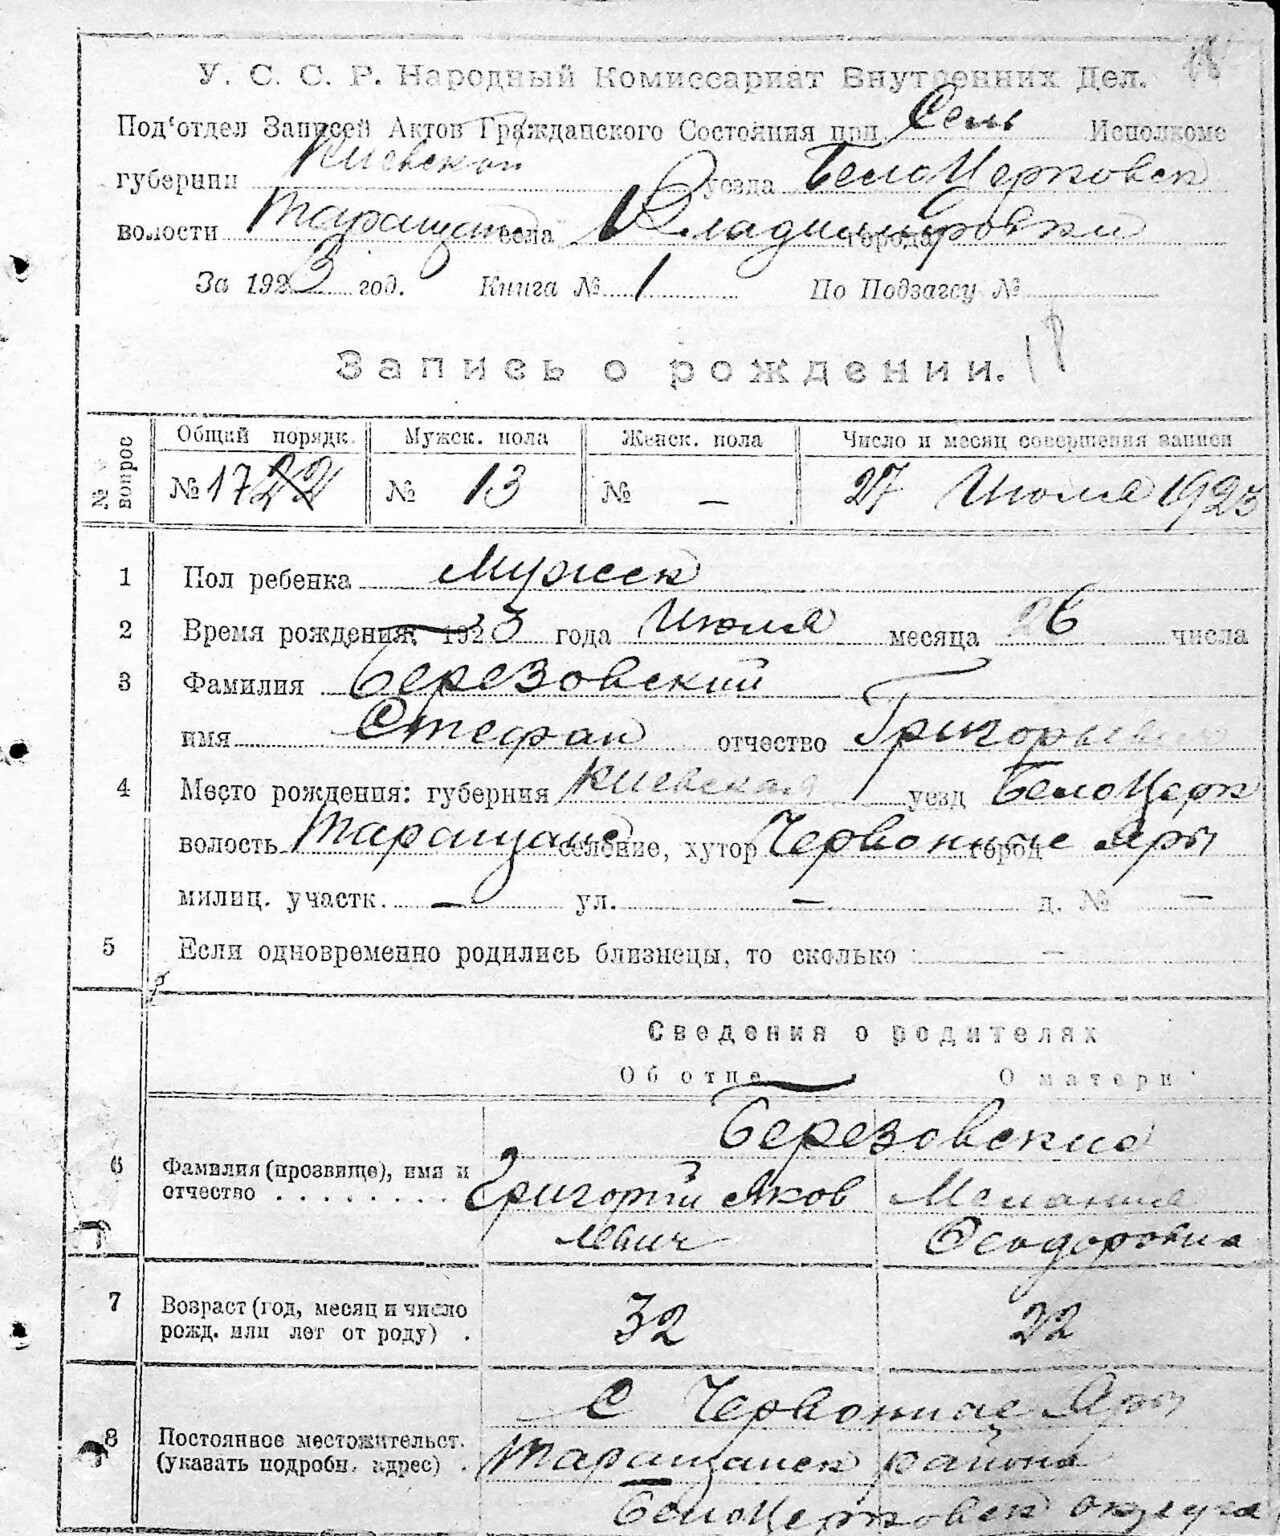 У. С. С. Р. Народный Комиссариат Внутренних Дел.
Под'отдел Записей Актов Гражданского Состояния при Сель Исполкоме
губернии Киевской уезда БелоЦерковск
волости Таращанс села Владимировки города
За 1923 год. Книга № 1 По Подзагсу №
Запись о рождении. 18
№ вопрос Общий порядк. Мужск. пола Женск. пола Число и месяц совершения записи
№ 17 № 13 № — 27 Июля 1923
1 Пол ребенка Мужск
2 Время рождения: 1923 года Июля месяца 26 числа
3 Фамилия Березовский
имя Стефан отчество Григорьевич
4 Место рождения: губерния Киевская уезд БелоЦерк
волость Таращанс селение, хутор Червонные Яры город
милиц. участк. — ул. — д. № —
5 Если одновременно родились близнецы, то сколько —
Сведения о родителях
Об отце О матери
Березовские
6 Фамилия (прозвище), имя и отчество Григорий Яков Мелания
левич Феодоровна
7 Возраст (год, месяц и число рожд. или лет от роду) . 32 22
С Червонные Яры
8 Постоянное местожительст. (указать подробн. адрес) . Таращанск района
БелоЦерковск округа